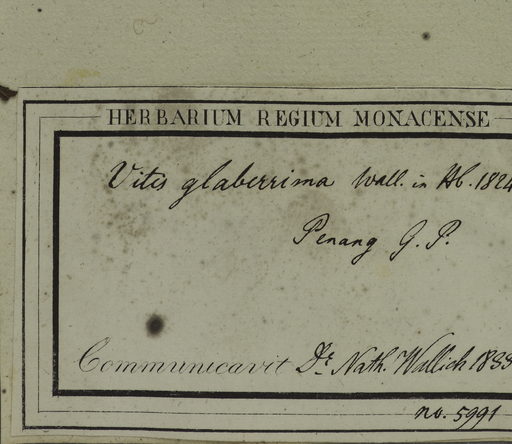 HERBARIUM REGIUM MONACENSE
Vitis glaberrima Wall. in Hb. 1824
Penang G. P.
Communicavit Dr. Nath. Wallich 1833
no. 5991